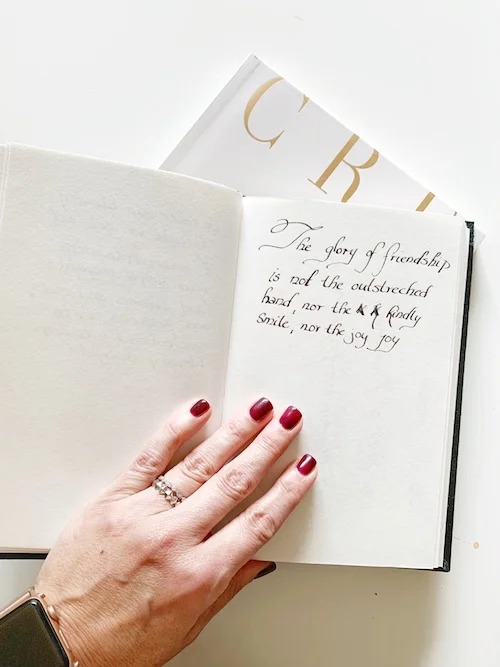 CRI
The glory of friendship
is not the outstreched
hand, nor the kindly
smile, nor the joy joy